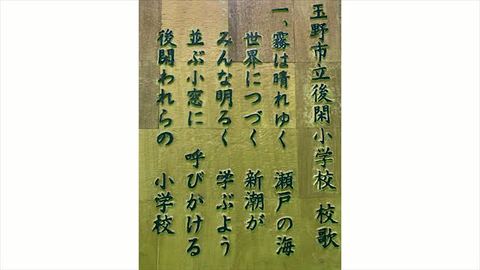 玉野市立後閑小学校 校歌
一、霧は晴れゆく 瀬戸の海
世界につづく 新潮が
みんな明るく 学ぶよう
並ぶ小窓に 呼びかける
後閑われらの 小学校